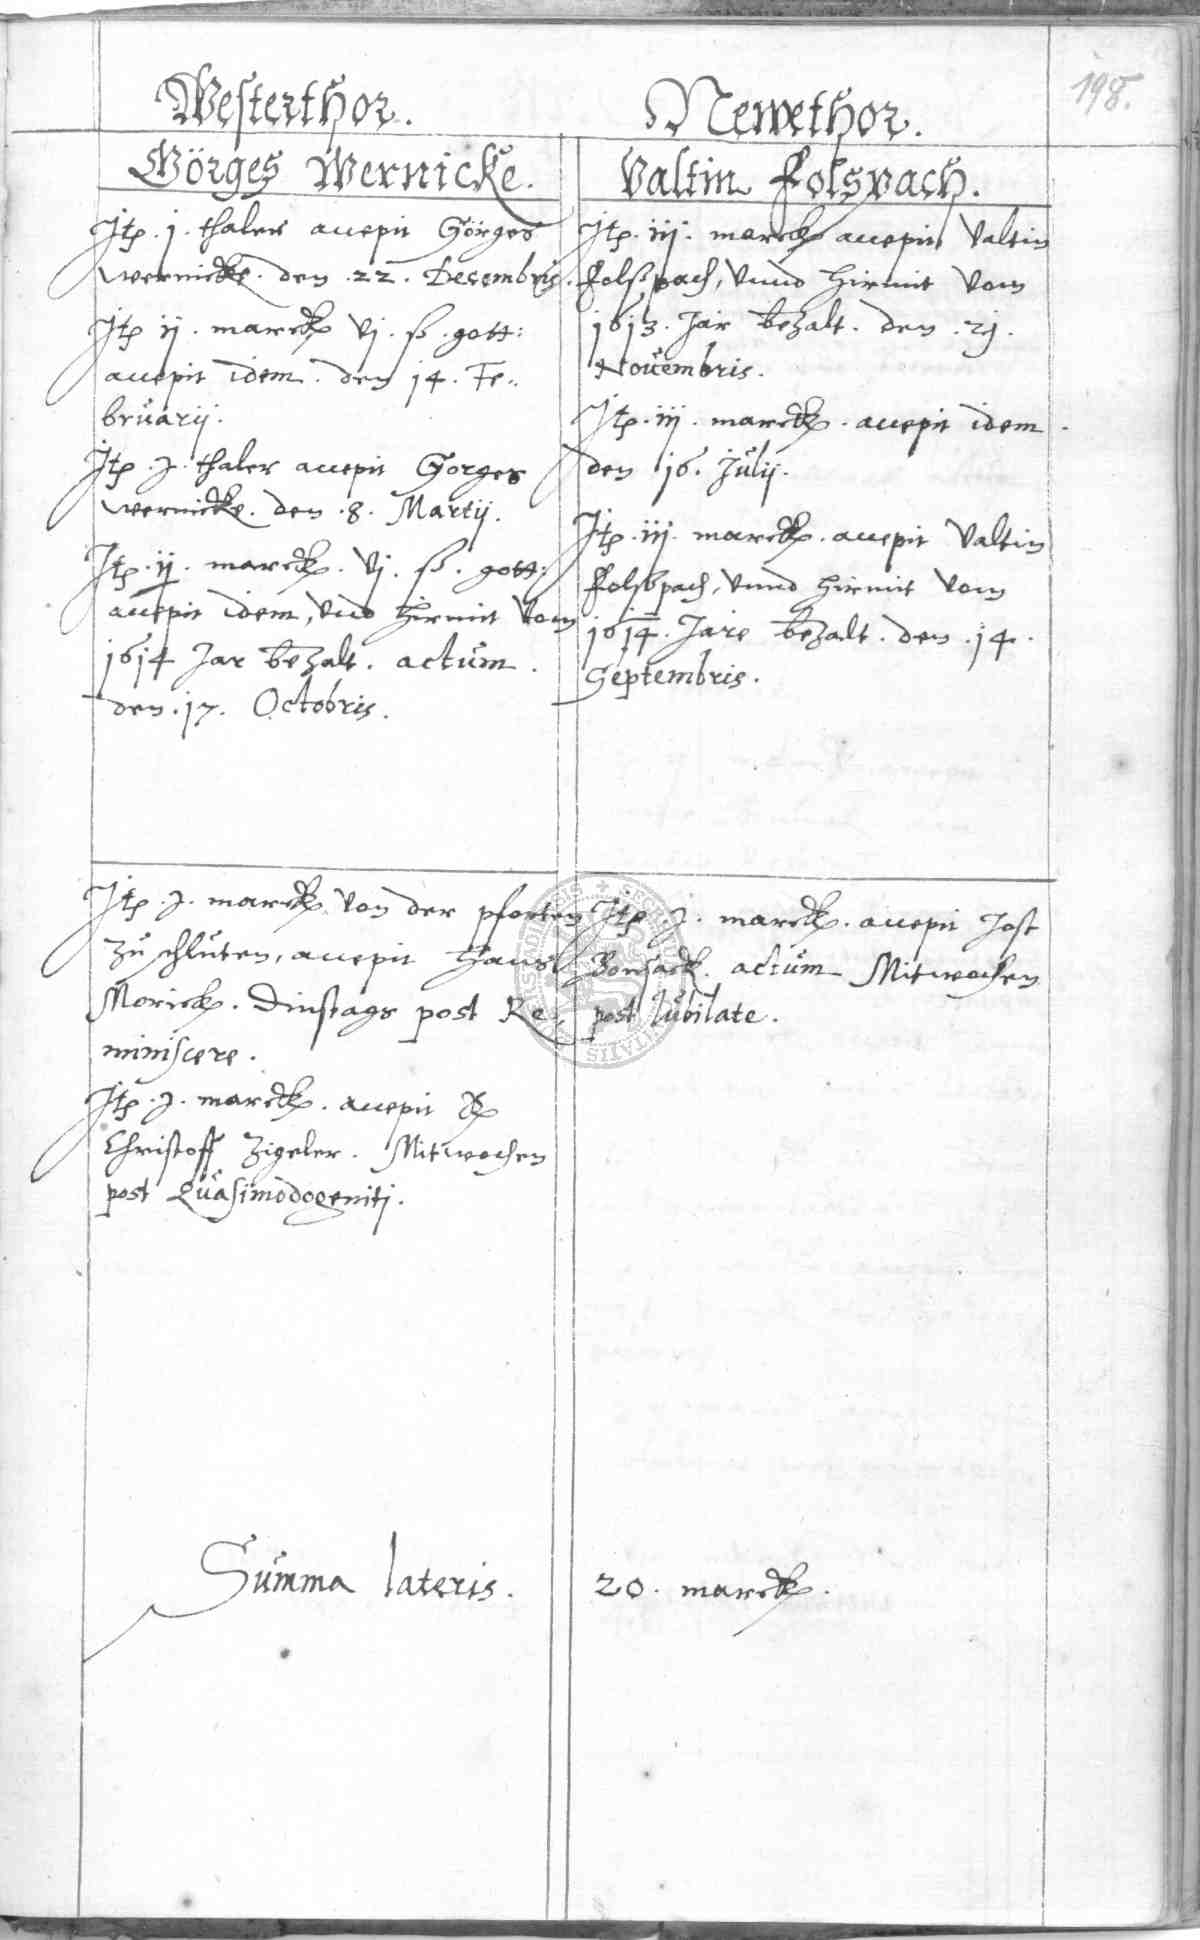 198.
Westerthor.
Görges Wernicke.
Itp. j. thaler accepit Görges
wernicke. den .22. Decembris.
Itp ij. marck vj. ß. gott:
accepit idem. den 14. Fe-
bruarij.
Itp. j. thaler accepit Gorges
wernicke. den .8. Martij.
Itp. ij. marck. vj. ß. gott:
accepit idem, vnd hirmit vom
1614 Jar bezalt. actum.
den .17. Octobris.
Itp. j. marck von der pforten
zu schluten, accepit Hans
Morick. Dinstags post Re-
miniscere.
Itp. j. marck. accepit
Christoff Zigeler. Mitwochen
post Quasimodogeniti.
Newethor.
Valtin Folspach.
Itp. iij. marck accepit Valtin
Folspach, vnnd hirmit vom
1613. Jar bezalt. den .21.
Novembris.
Itp. iij. marck. accepit idem
den 16. Julij.
Itp. iij. marck. accepit Valtin
Folspach, vnnd hirmit vom
1614. Jare bezalt. den .14.
Septembris.
Itp j. marck. accepit Jost
Bonsack. actum Mitwochen
post Jubilate.
Summa lateris. 20. marck.